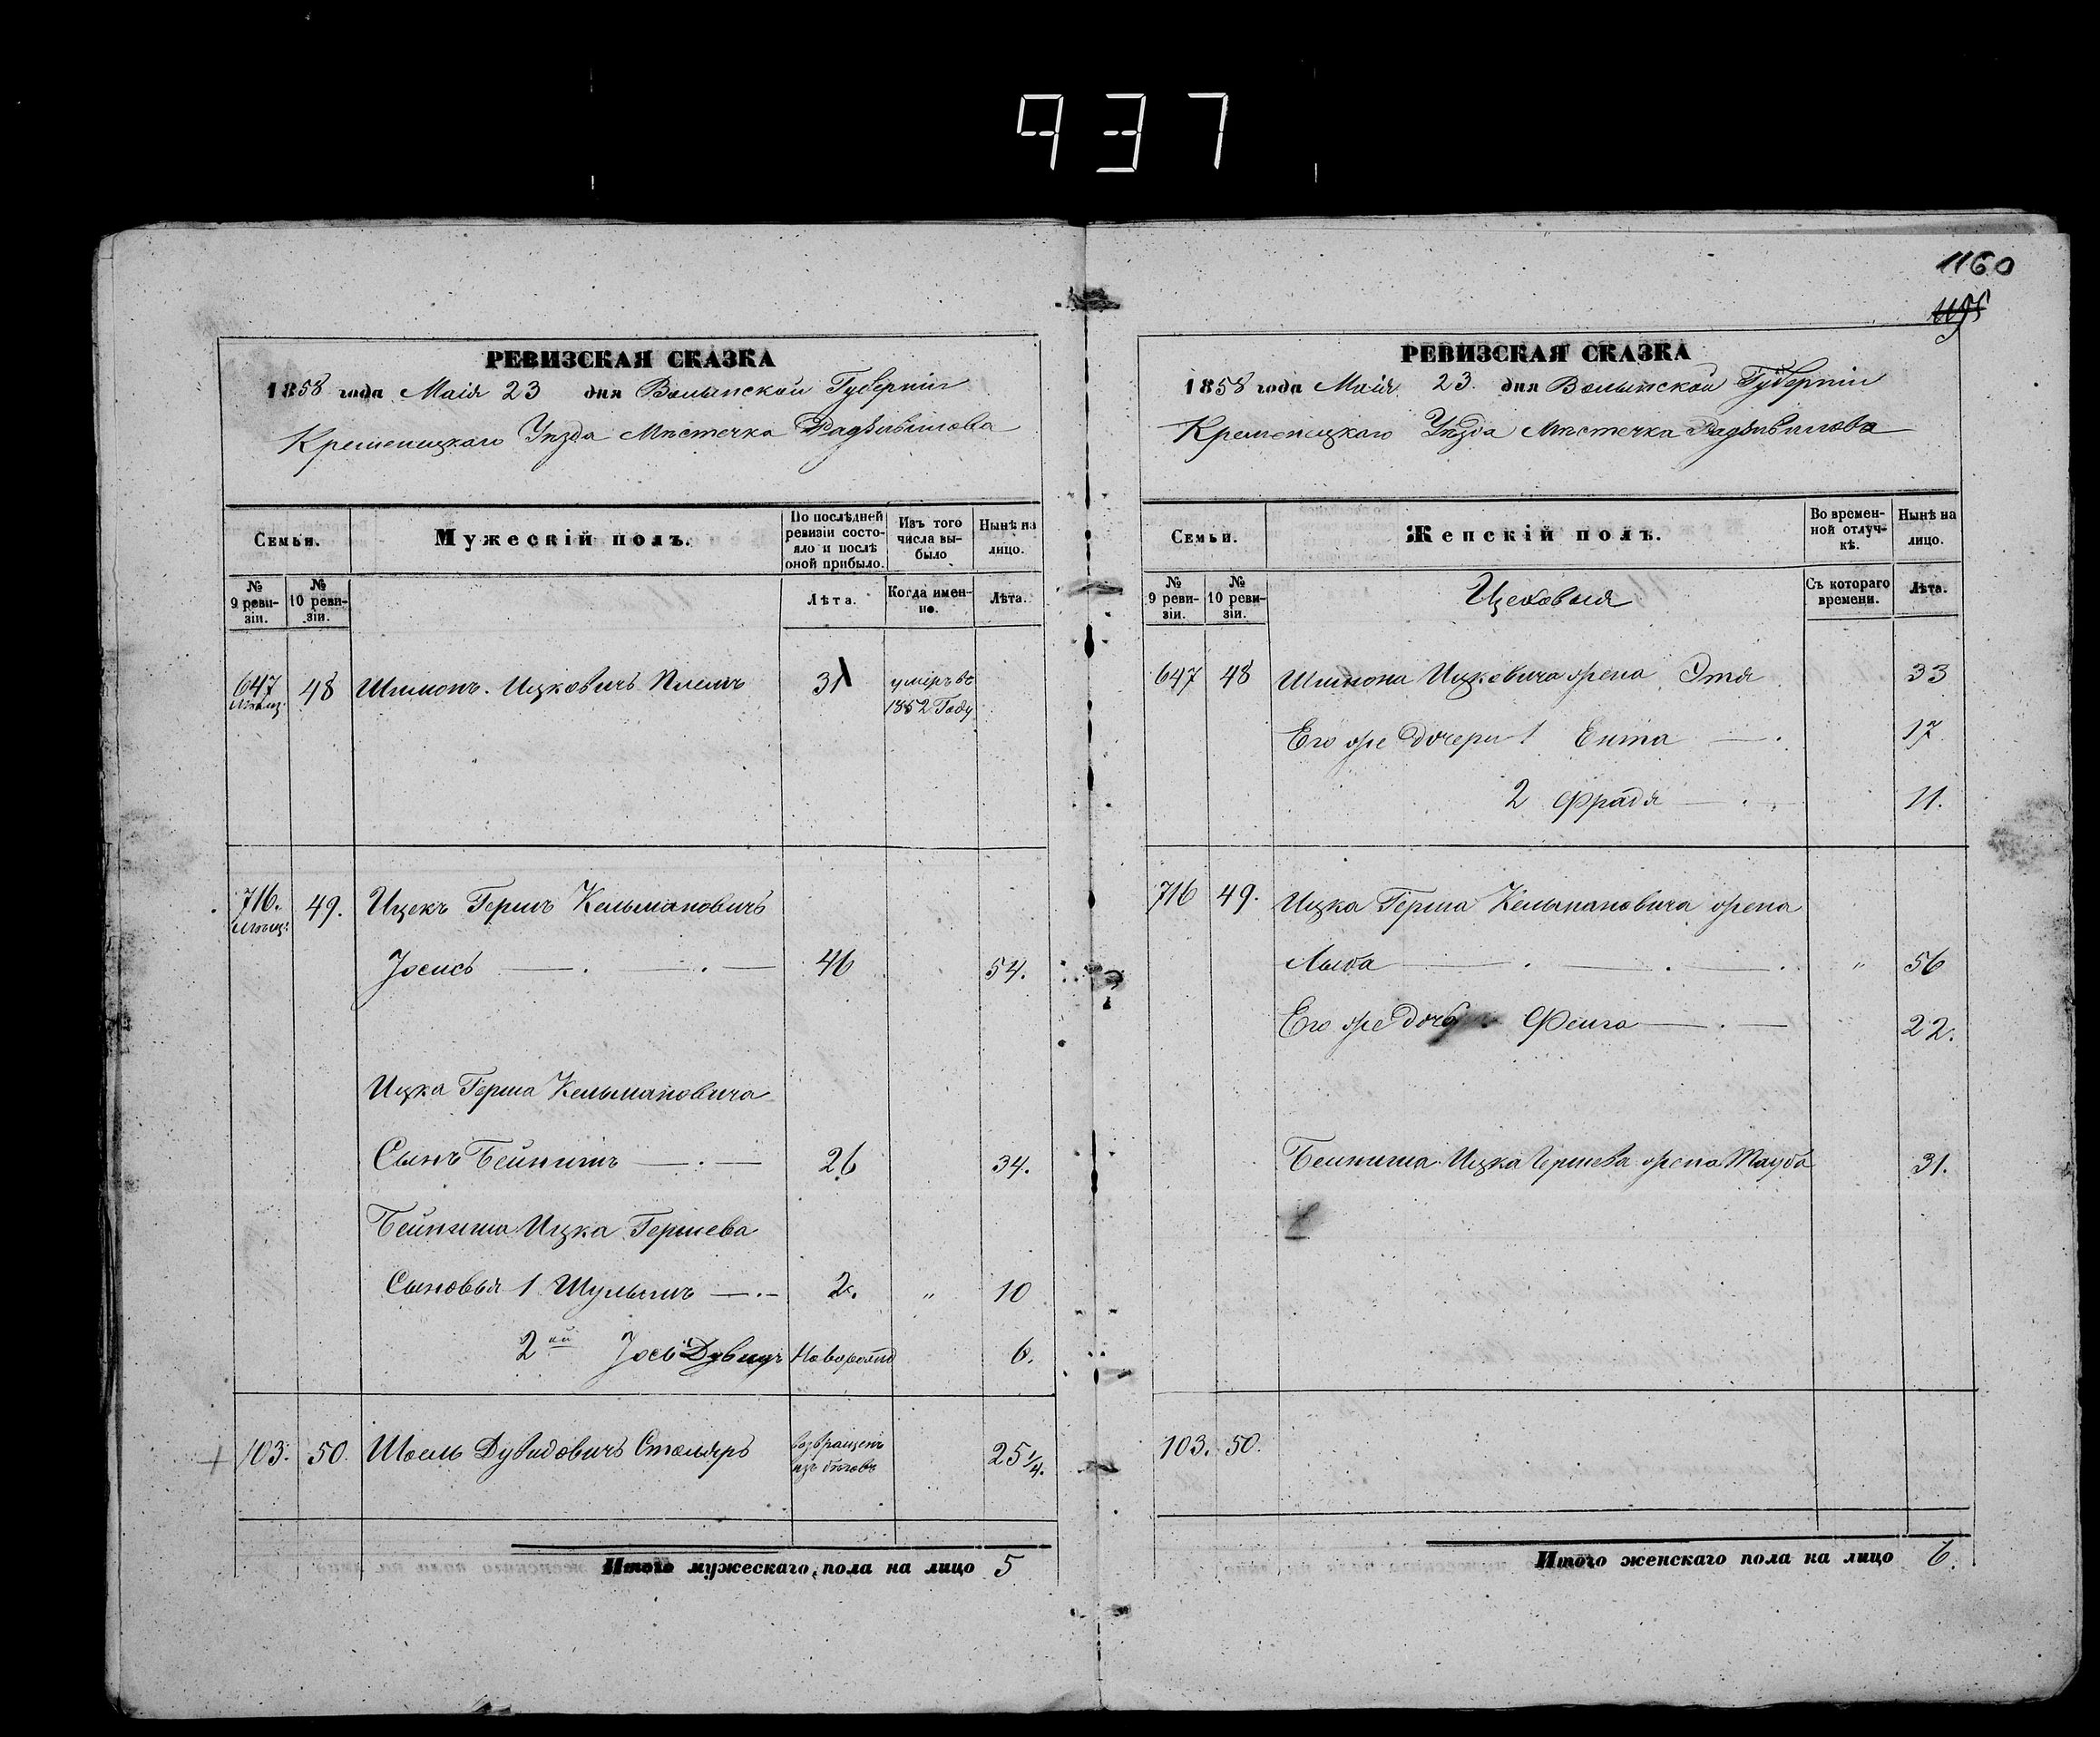 937
1160
РЕВИЗСКАЯ СКАЗКА
1858 года Маія 23 дня Волынской Губерніи
Кременецкаго Уѣзда Мѣстечка Радзивилова
Семьи.
Мужескій полъ.
По послѣдней ревизіи состояло и послѣ оной прибыло.
Изъ того числа выбыло
Нынѣ на лицо.
№ 9 ревизіи.
№ 10 ревизіи.
Лѣта.
Когда именно.
Лѣта.
647 48 Шимонъ Ицковичъ 31 умеръ въ
1852 Году
716. 49. Ицекъ Гершъ Кельмановичъ
Іосисъ 46 54.
Ицка Герша Кельмановича
Сынъ Бейнишъ 26 34.
Бейниша Ицка Гершева
Сыновья 1 Шулимъ 2. " 10
2ой Новорожд 6.
103. 50. Шоель Дувидовичъ Столяръ возвращенъ
изъ бѣговъ 25 1/4.
Итого мужескаго пола на лицо 5
РЕВИЗСКАЯ СКАЗКА
1858 года Маія 23. дня Волынской Губерніи
Кременецкаго Уѣзда Мѣстечка Радзивилова
Семьи.
Женскій полъ.
Во временной отлучкѣ.
Нынѣ на лицо.
№ 9 ревизіи.
№ 10 ревизіи.
Цеховыя
Съ котораго времени.
Лѣта.
647 48 Шимона Ицковича жена Этя 33
Его же дочери 1 Ента 17
2 Фрадя 11.
716 49. Ицка Герша Кельмановича жена
Лыба " 56
Его же дочь Фейга 22.
Бейниша Ицка Гершева жена Тауба 31.
103. 50.
Итого женскаго пола на лицо 6.